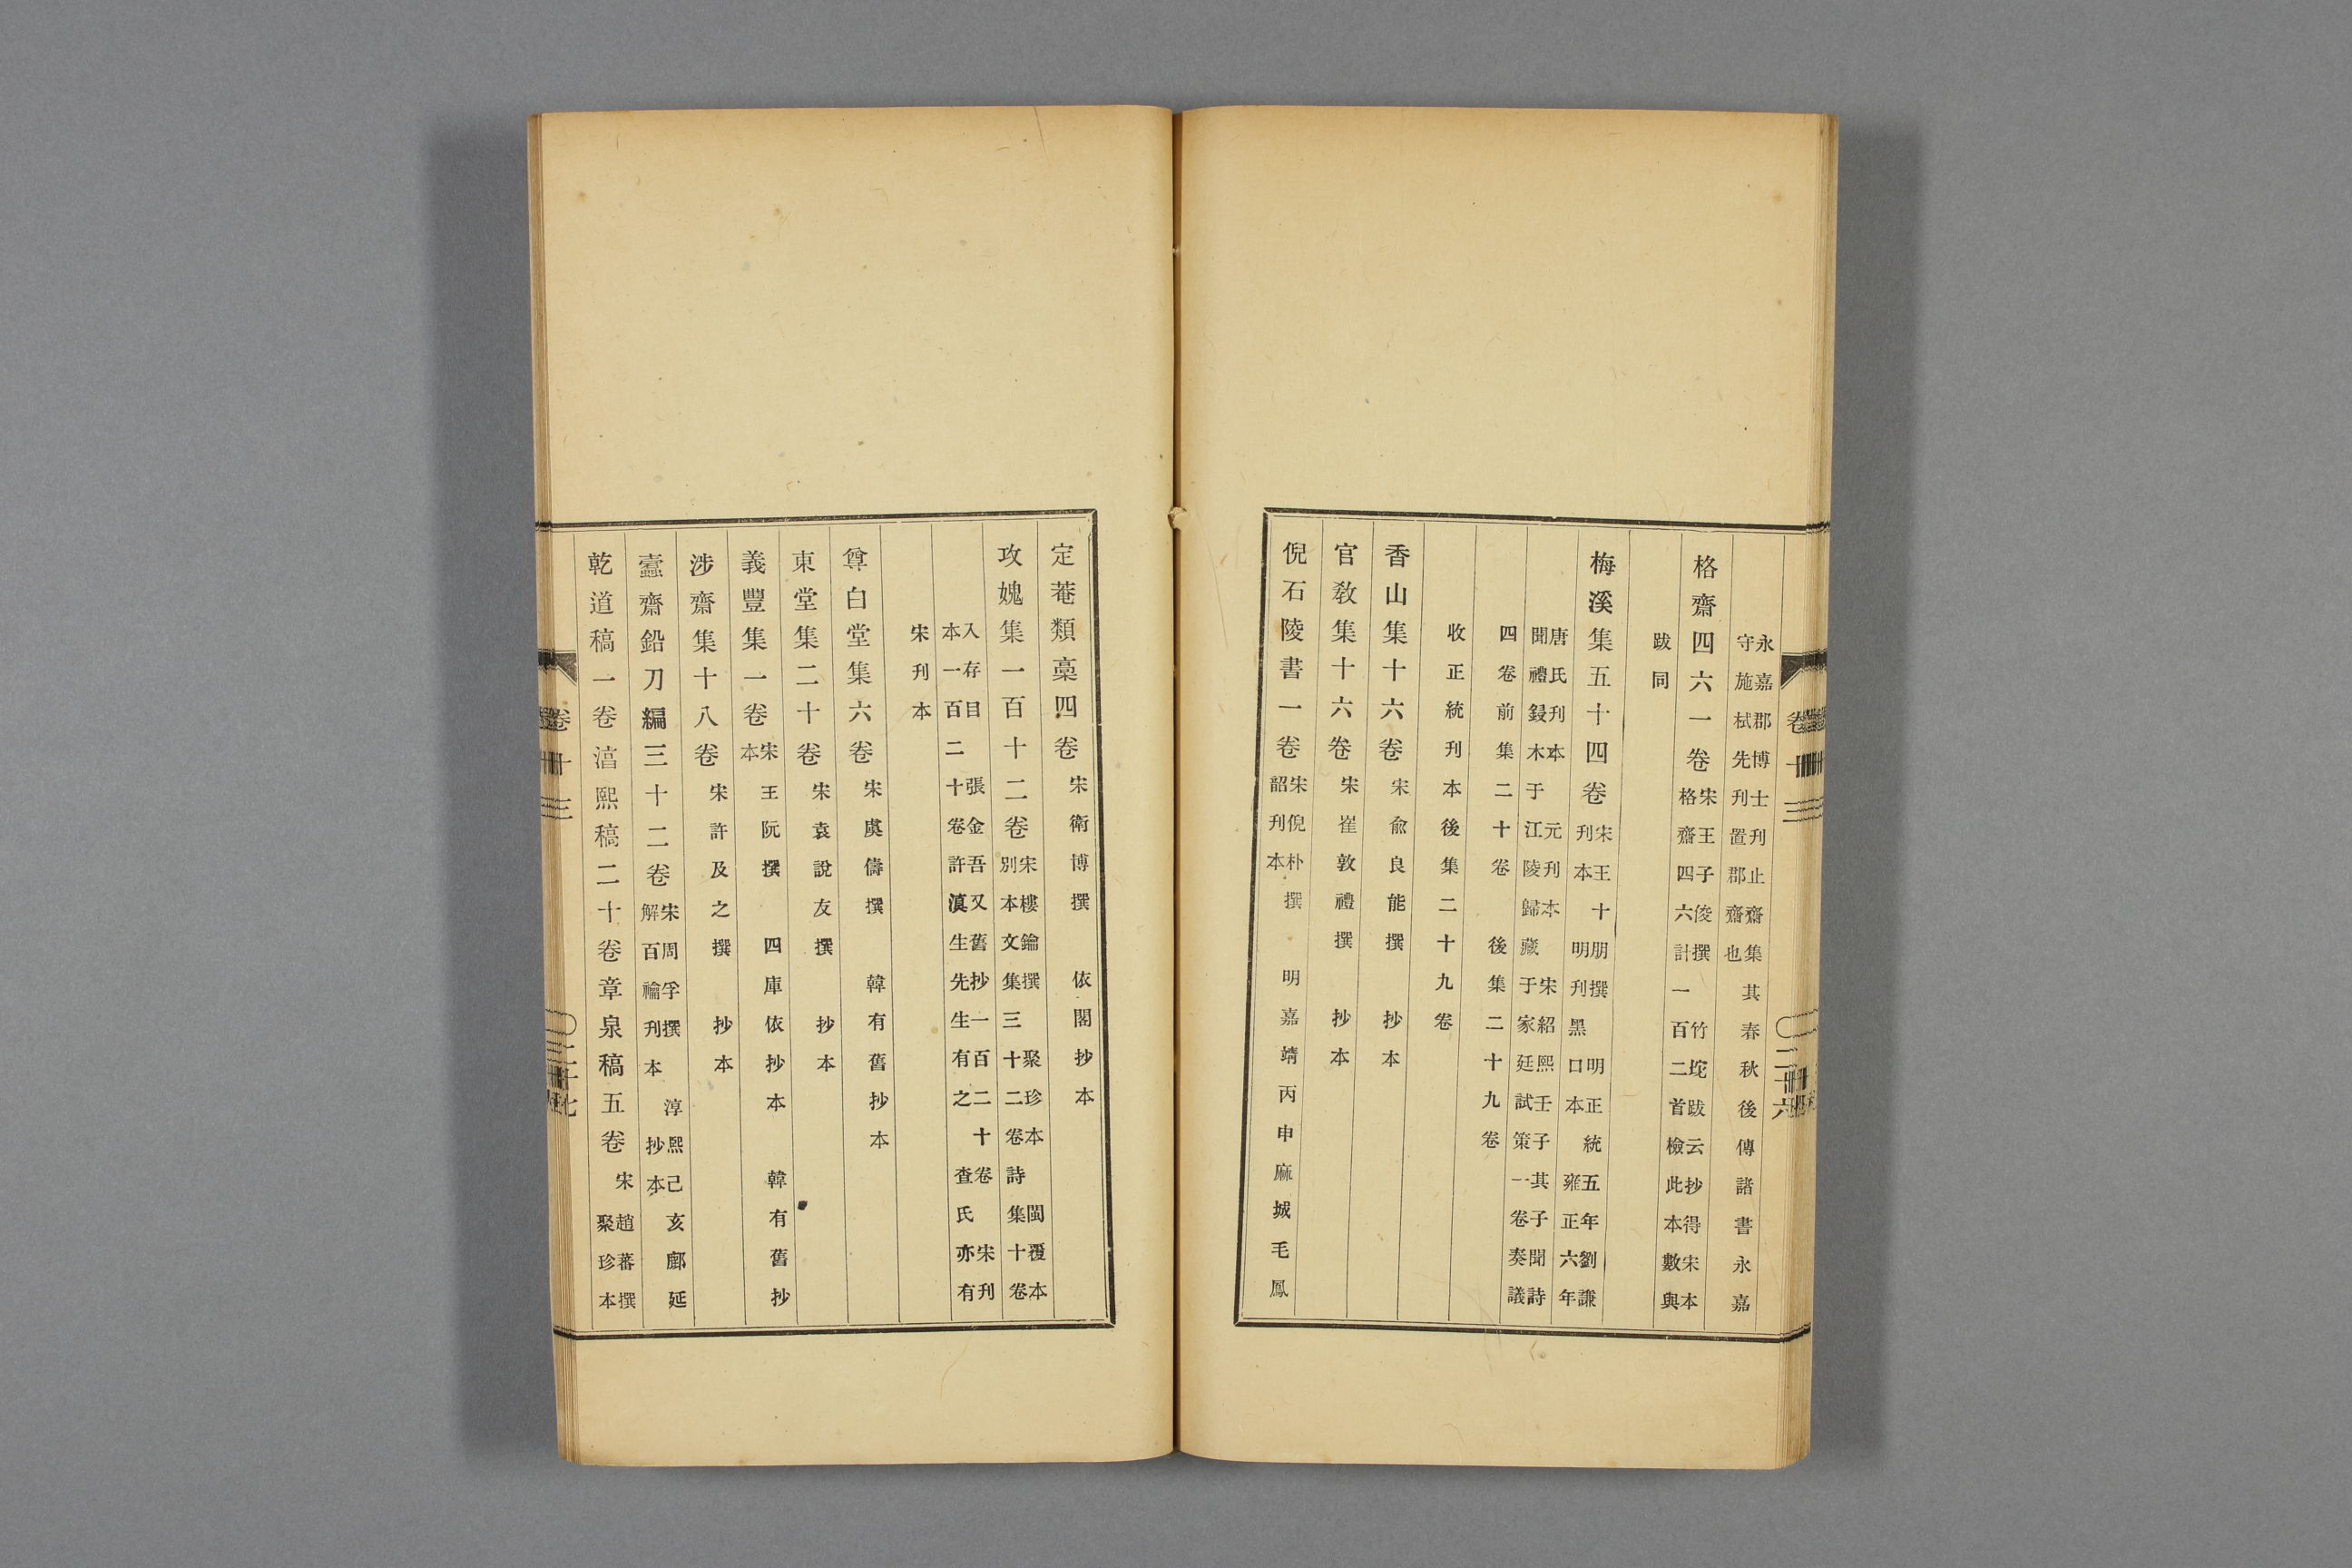 永嘉郡博士刊止齋集其春秋後傳諸書永嘉
守施栻先刊置郡齋也
格齋四六一卷 宋王子俊撰 竹垞跋云抄得宋本
格齋四六計一百二首檢此本數與
跋同
梅溪集五十四卷 宋王十朋撰 明正統五年劉謙
刊本 明刊黑口本 雍正六年
唐氏刊本 元刊本 宋紹熙壬子其子聞詩
聞禮鋟木于江陵歸藏于家廷試策一卷奏議
四卷前集二十卷 後集二十九卷
收正統刊本後集二十九卷
香山集十六卷 宋俞良能撰 抄本
官敎集十六卷 宋崔敦禮撰 抄本
倪石陵書一卷 宋倪朴撰 明嘉靖丙申麻城毛鳳
韶刊本
卷十三 二十六
定菴類藁四卷 宋衛博撰 依閣抄本
攻媿集一百十二卷 宋樓鑰撰 聚珍本 閩覆本
別本文集三十二卷詩集十卷
入存目 張金吾又舊抄一百二十卷 宋刊
本一百二十卷許滇生先生有之 查氏亦有
宋刊本
尊白堂集六卷 宋虞儔撰 韓有舊抄本
東堂集二十卷 宋袁說友撰 抄本
義豐集一卷 宋王阮撰 四庫依抄本 韓有舊抄
本
涉齋集十八卷 宋許及之撰 抄本
蠹齋鉛刀編三十二卷 宋周孚撰 淳熙己亥鄜延
解百禴刊本 抄本
乾道稿一卷湻熙稿二十卷章泉稿五卷 宋趙蕃撰
聚珍本
卷十三 二十七